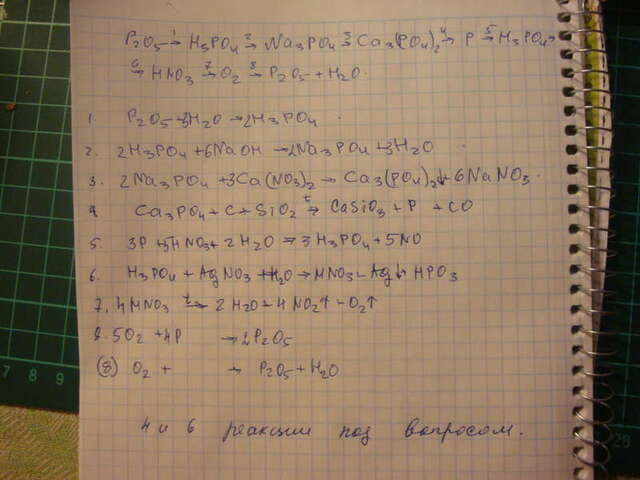 P₂O₅ →¹ H₃PO₄ →² Na₃PO₄ →³ Ca₃(PO₄)₂ →⁴ P →⁵ H₃PO₄ →
→⁶ HNO₃ →⁷ O₂ →⁸ P₂O₅ + H₂O.
1. P₂O₅ + 3H₂O → 2H₃PO₄
2. 2H₃PO₄ + 6NaOH → 2Na₃PO₄ + 3H₂O
3. 2Na₃PO₄ + 3Ca(NO₃)₂ → Ca₃(PO₄)₂↓ + 6NaNO₃.
4 Ca₃PO₄ + C + SiO₂ →ᵗ CaSiO₃ + P + CO
5. 3P + 5HNO₃ + 2H₂O = 3H₃PO₄ + 5NO
6. H₃PO₄ + AgNO₃ + H₂O → HNO₃ + Ag↓ HPO₃
7. 4HNO₃ →ᵗ 2H₂O + 4NO₂↑ + O₂↑
8. 5O₂ + 4P → 2P₂O₅
(8) O₂ + → P₂O₅ + H₂O
4 и 6 реакции под вопросом.
7 8 9